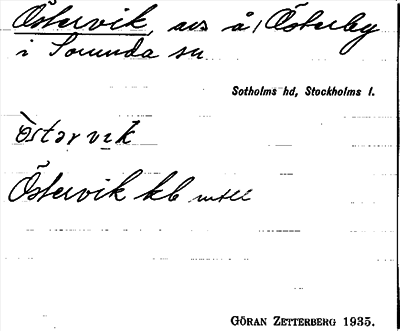 Östervik, avs å Österby
i Sorunda sn
Sotholms hd, Stockholms l.
östərvik
Östervik kb
GÖRAN ZETTERBERG 1935.